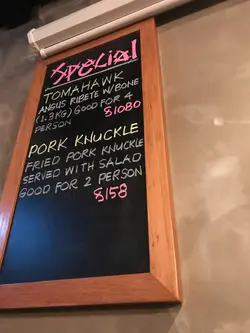 Special
TOMAHAWK
ANGUS RIBETE W/BONE
(1.3KG) GOOD FOR 4
PERSON $1080
PORK KNUCKLE
FRIED PORK KNUCKLE
SERVED WITH SALAD
GOOD FOR 2 PERSON
$158